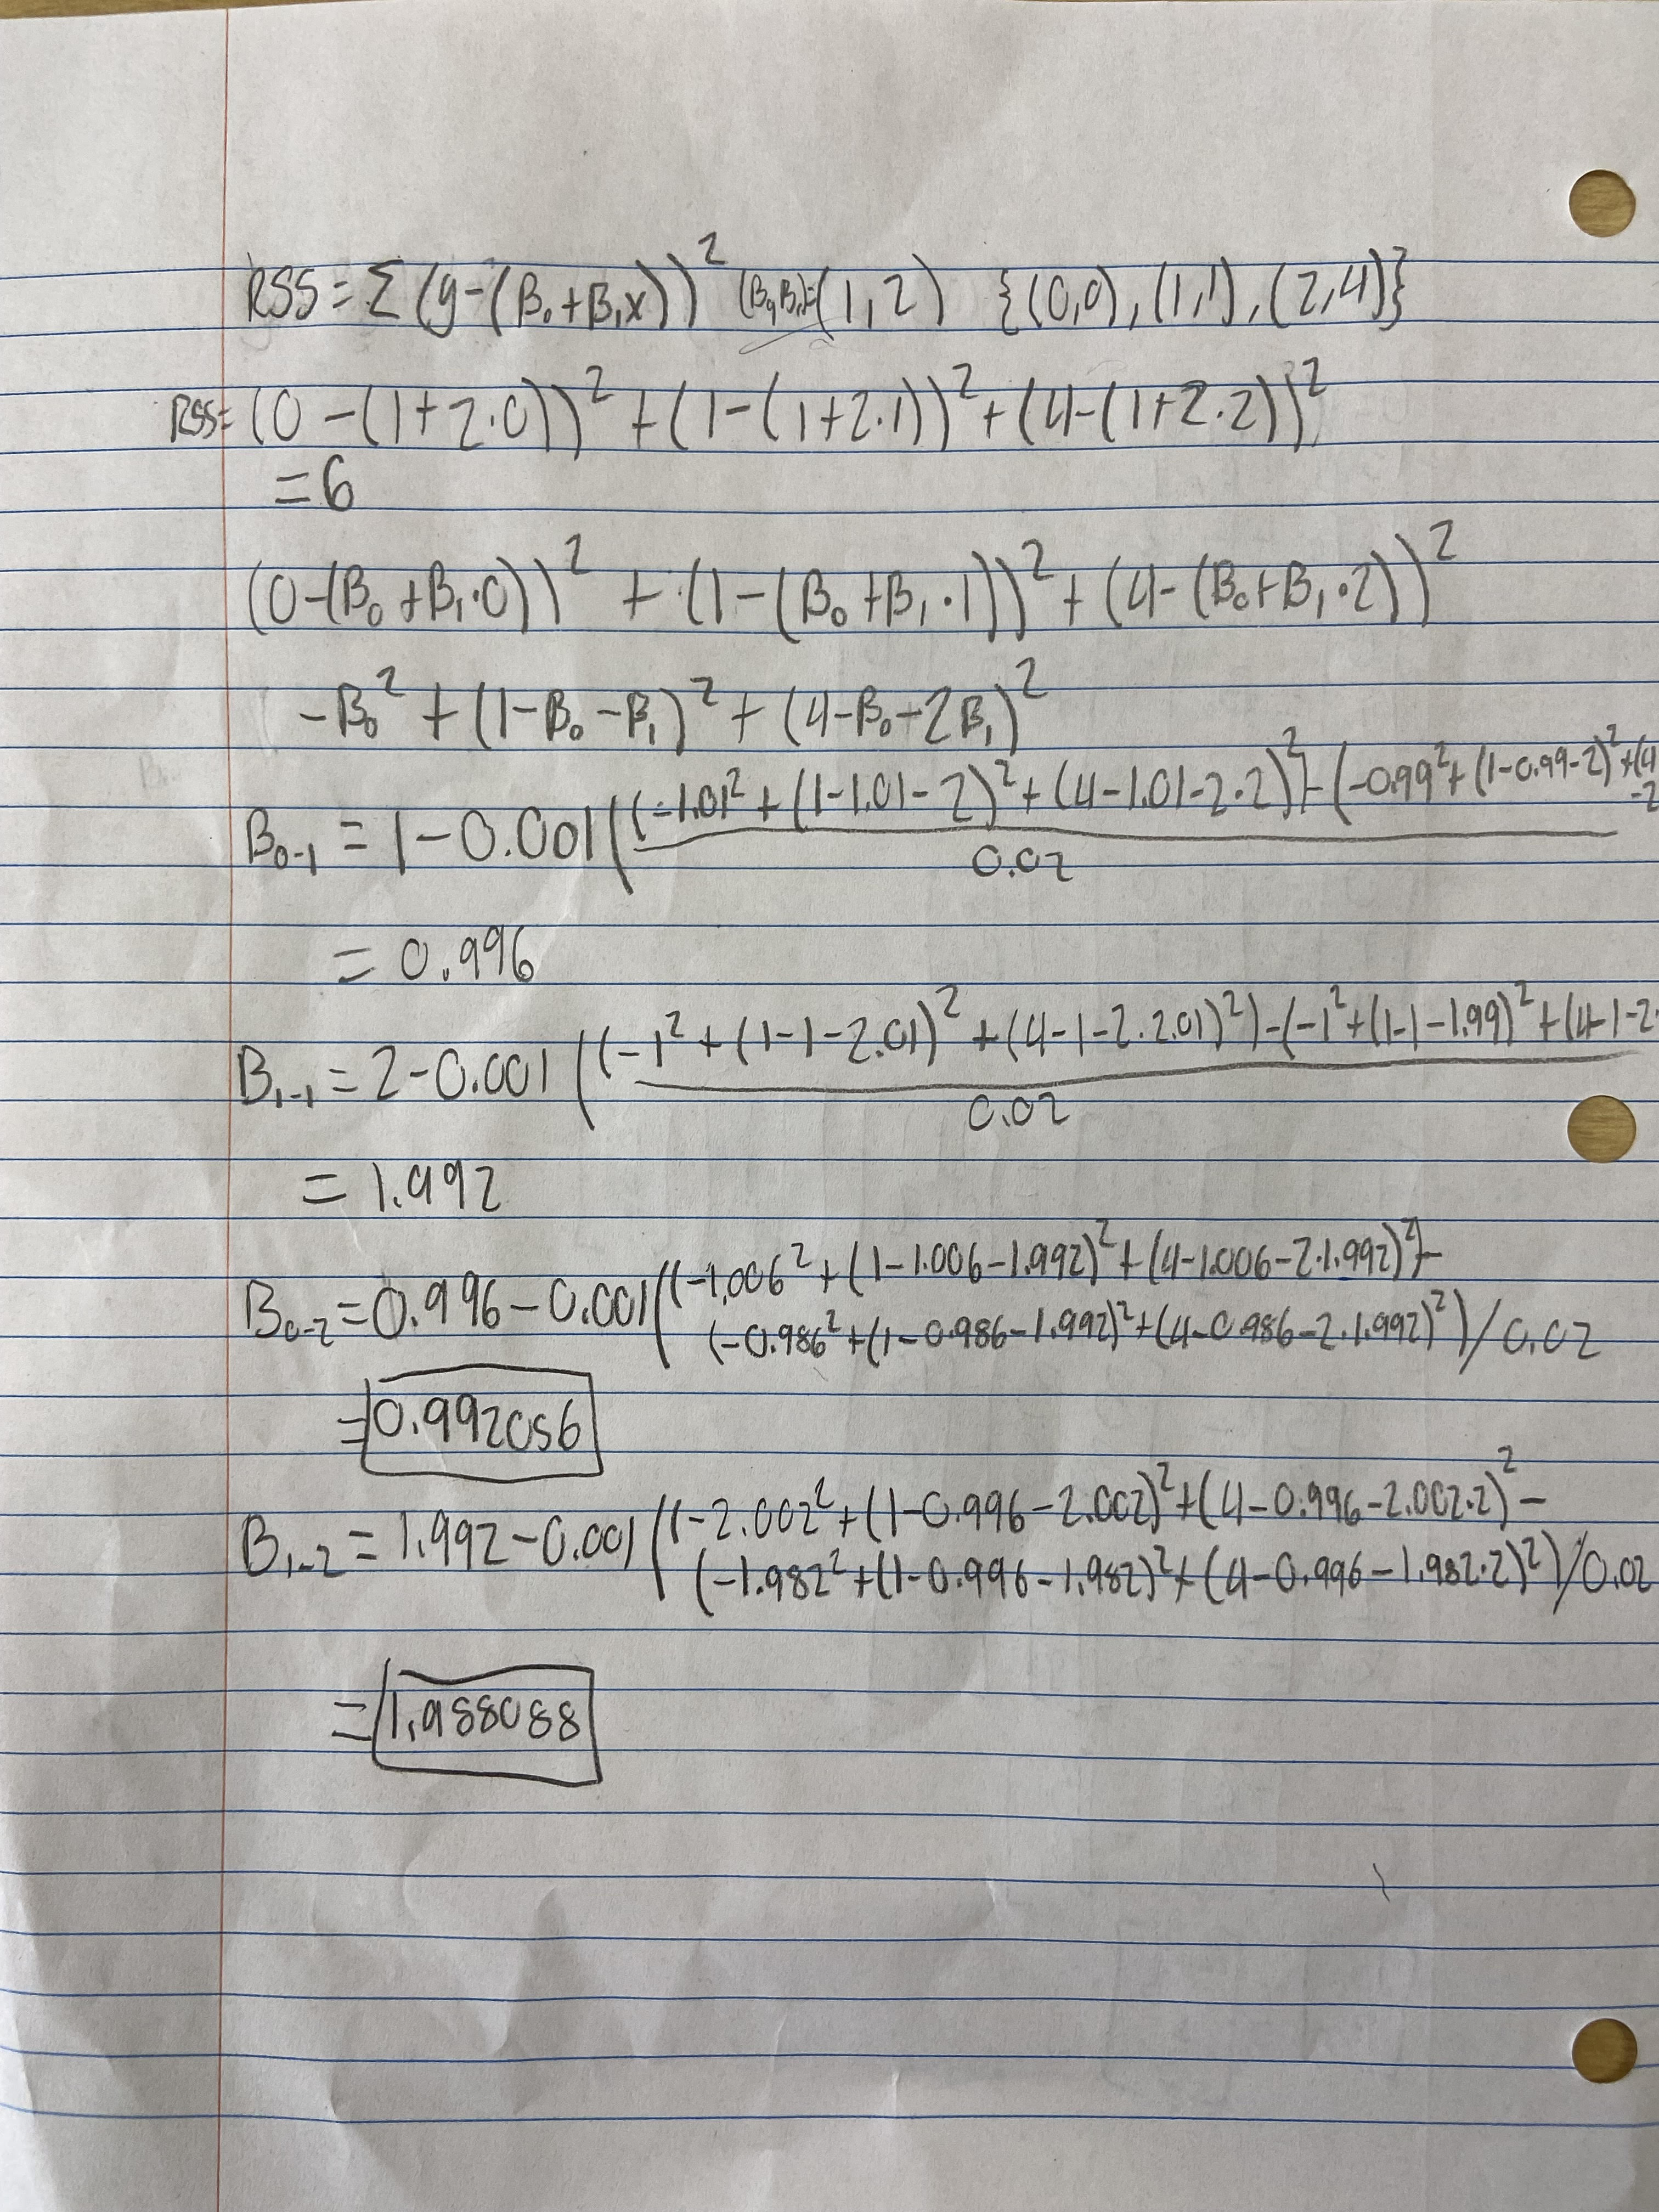 RSS = Σ(y-(B₀+B₁x))² (B₀,B₁)=(1,2) {(0,0),(1,1),(2,4)}
RSS= (0-(1+2·0))² + (1-(1+2·1))² + (4-(1+2·2))²
=6
(0-(B₀+B₁·0))² + (1-(B₀+B₁·1))² + (4-(B₀+B₁·2))²
-B₀² + (1-B₀-B₁)² + (4-B₀-2B₁)²
B₀₋₁ = 1-0.001((-1.01² + (1-1.01-2)² + (4-1.01-2·2)²)-(-0.99² + (1-0.99-2)² + (4
-2
0.02
= 0.996
B₁₋₁ = 2-0.001((-1² + (1-1-2.01)² + (4-1-2·2.01)²)-(-1² + (1-1-1.99)² + (4-1-2·
0.02
= 1.992
B₀₋₂ = 0.996-0.001((-1.006² + (1-1.006-1.992)² + (4-1.006-2·1.992)²)-
(-0.986² + (1-0.986-1.992)² + (4-0.986-2·1.992)²)/0.02
= 0.992056
B₁₋₂ = 1.992-0.001((-2.002² + (1-0.996-2.002)² + (4-0.996-2.002·2)² -
(-1.982² + (1-0.996-1.982)² + (4-0.996-1.982·2)²)/0.02
= 1.988088